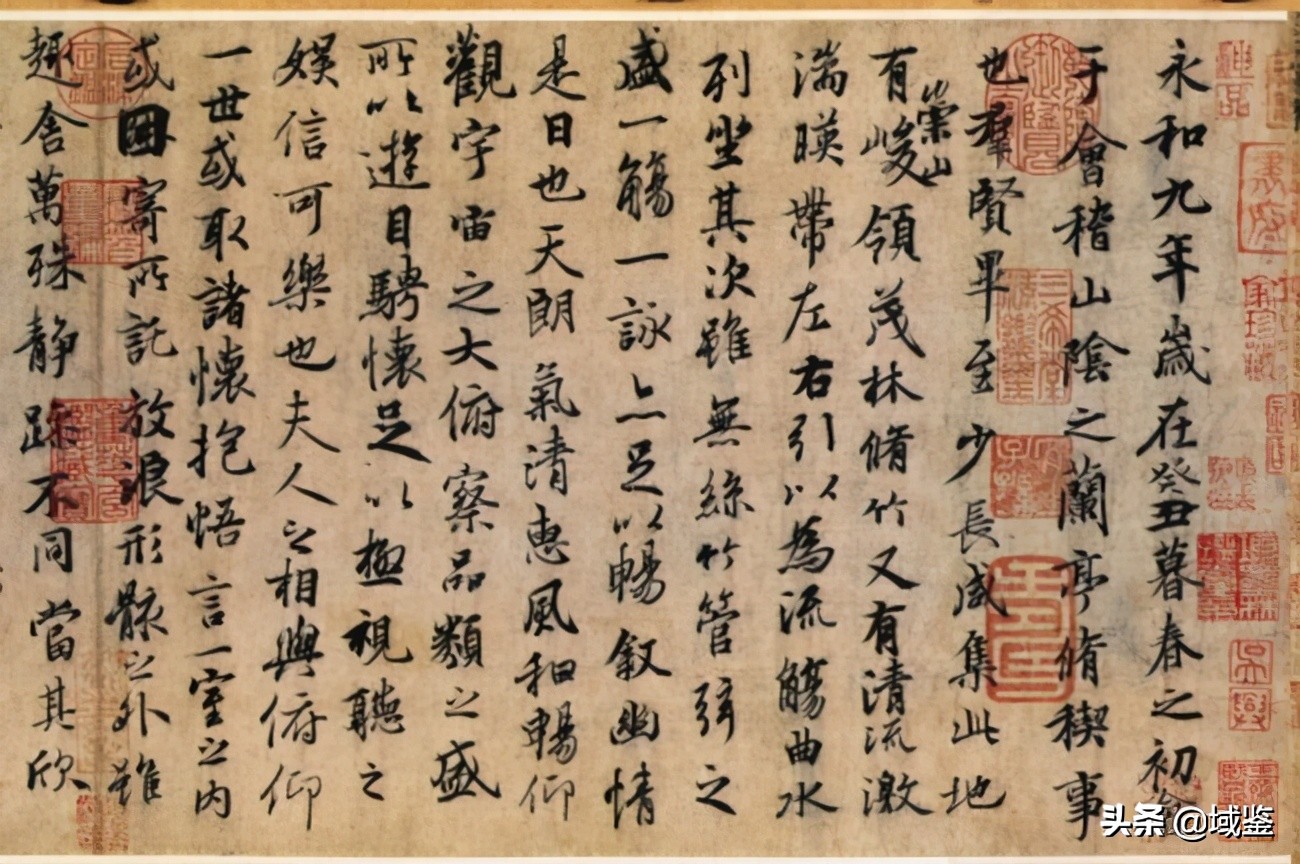 永和九年歲在癸丑暮春之初會
于會稽山陰之蘭亭脩稧事
也羣賢畢至少長咸集此地
有崇山峻領茂林脩竹又有清流激
湍暎帶左右引以為流觴曲水
列坐其次雖無絲竹管弦之
盛一觴一詠亦足以暢敘幽情
是日也天朗氣清惠風和暢仰
觀宇宙之大俯察品類之盛
所以遊目騁懷足以極視聽之
娛信可樂也夫人之相與俯仰
一世或取諸懷抱悟言一室之內
或因寄所託放浪形骸之外雖
趣舍萬殊静躁不同當其欣
神品
三希堂精鑑璽
宜子孫
头条 @域鉴